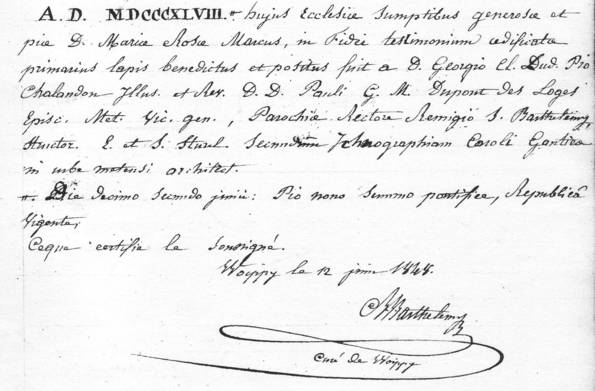 A. D. MDCCCXLVIII. + hujus Ecclesiæ sumptibus generosæ et
piæ D. Mariæ Rosæ Marcus, in Fidei testimonium ædificata
primarius lapis benedictus et positus fuit a D. Georgio Cl. Lud. Pio
Chalandon Illus. et Rev. D. D. Pauli G. M. Dupont des Loges
Episc. Met. Vic. gen., Parochiæ Rectore Remigio S. Barthelémy,
Auctor. E. et S. Sturel secundum Ichnographiam Caroli Gautiez
in urbe metensi architect.
+. Die decimo secundo junii: Pio nono summo pontifice, Republicâ
Vigente,
Ceque certifie le soussigné.
Woippy le 12 juin 1848.
Barthelemy
Curé de Woippy